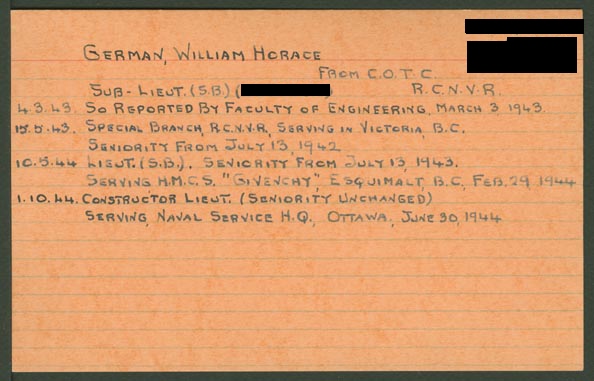 GERMAN, WILLIAM HORACE
FROM C.O.T.C.
SUB-LIEUT. (S.B.) ( R.C.N.V.R.
4.3.43. SO REPORTED BY FACULTY OF ENGINEERING, MARCH 3, 1943.
15.5.43. SPECIAL BRANCH, R.C.N.V.R, SERVING IN VICTORIA, B.C.
SENIORITY FROM JULY 13, 1942
10.5.44 LIEUT. (S.B.). SENIORITY FROM JULY 13, 1943.
SERVING H.M.C.S. "GIVENCHY", ESQUIMALT, B.C. FEB. 29, 1944
1.10.44. CONSTRUCTOR LIEUT. (SENIORITY UNCHANGED)
SERVING, NAVAL SERVICE H.Q., OTTAWA, JUNE 30, 1944